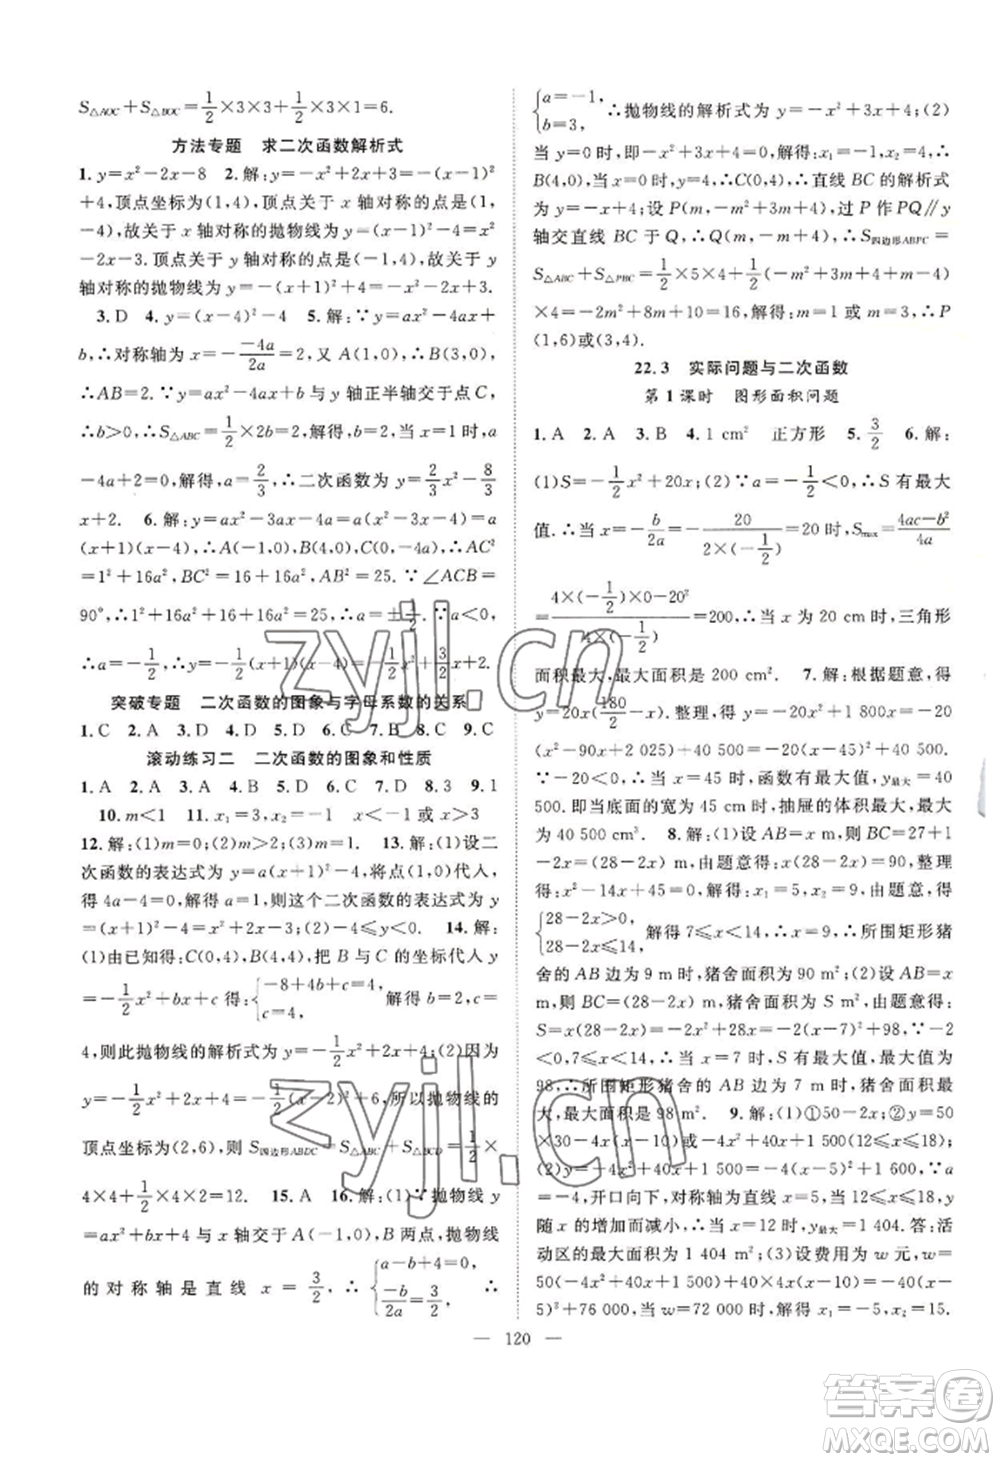 S△AOC+S△BOC=1/2×3×3+1/2×3×1=6.
方法专题 求二次函数解析式
1. y=x²-2x-8 2. 解:y=-x²+2x+3=-(x-1)²
+4,顶点坐标为(1,4),故关于 x 轴对称的点是(1,
-4),故关于 x 轴对称的抛物线为 y=(x-1)²-4=
x²-2x-3. 顶点关于 y 轴对称的点是(-1,4),故关于 y
轴对称的抛物线为 y=-(x+1)²+4=-x²-2x+3.
3. D 4. y=(x-4)²-4 5. 解:∵y=ax²-4ax+
b,∴对称轴为 x=-(-4a)/2a=2,又∵A(1,0),∴B(3,0),
∴AB=2. ∵抛物线 y=ax²-4ax+b 与 y 轴正半轴交于点 C,
∴b>0,∴S△ABC=1/2×2b=2. 解得,b=2,当 x=1 时,a
-4a+2=0,解得,a=2/3,∴二次函数为 y=2/3x²-8/3
x+2. 6. 解:∵y=ax²-3ax-4a=a(x²-3x-4)=a
(x-4)(x+1)),∴A(-1,0),B(4,0),C(0,-4a),∴AC²
=1²+16a²,BC²=16+16a²,AB²=25. ∵∠ACB=
90°,∴1²+16a²+16+16a²=25,∴a=±1/2. ∵a<0,
∴a=-1/2,∴y=-1/2(x+1)(x-4)=-1/2x²+3/2x+2.
突破专题 二次函数的图象与字母系数的关系
1. C 2. A 3. A 4. D 5. D 6. C 7. C 8. D 9. C
滚动练习二 二次函数的图象和性质
1. A 2. A 3. A 4. B 5. D 6. A 7. D 8. 3 9. 1
10. m<1 11. x₁=3,x₂=-1 x<-1 或 x>3
12. 解:(1)m=0;(2)m>-1/2. 13. 解:(1)设二
次函数的表达式为 y=a(x-3)²-4,将点(1,0)代人,
得 4a-4=0,解得 a=1,则这个二次函数的表达式为 y=
(x-3)²-4;(2)-4≤y<0. 14. 解:
(1)由已知得:C(0,4),B(4,4),把 B 与 C 的坐标代人 y=
-1/2x²+bx+c 得:{-8+4b+c=4, c=4, 解得:b=2,c=
4,则此抛物线的解析式为 y=-1/2x²+2x+4;(2)因为
y=-1/2x²+2x+4=-1/2(x-2)²+6,所以抛物线的
顶点坐标为(2,6),则 S四边形ABDC=S△ABC+S△BCD=1/2×
4×4+1/2×4×2=12. 15. A 16. 解:(1)抛物线 y
=ax²+bx+4 与 x 轴交于 A(-1,0)、B 两点,抛物线
的对称轴是直线 x=3/2, ∴{a-b+4=0, -b/2a=3/2, ∴
{a=-1, b=3, ∴抛物线的解析式为 y=-x²+3x+4;(2)
当 y=0 时,即-x²+3x+4=0,解得:x₁=-1,x₂=4,∴
B(4,0),∵x=0,y=4,∴C(0,4),∴直线 BC 的解析式
为 y=-x+4;设 P(m,-m²+3m+4),过 P 作 PQ∥y
轴交直线 BC 于 Q,∴Q(m,-m+4),∴S四边形ABPC=
S△ABC+S△PBC=1/2×5×4+1/2×(-m²+3m+4+m-4)
×4=-2m²+8m+10=16,解得:m=1,m=3,∴P
(1,6),(3,4).
22.3 实际问题与二次函数
第 1 课时 图形面积问题
1. A 2. A 3. B 4. 1 cm² 正方形 5. 3/2 6. 解:
(1)S=-1/2x²+20x;(2)∵a=-1/2<0,∴S 有最大
值. ∴当 x=-b/2a=-20/(2×(-1/2))=20 时,Smax=(4ac-b²)/4a
=(4×(-1/2)×0-20²)/(4×(-1/2))=200;∴当 x 为 20 cm 时,三角形
面积最大,最大面积是 200 cm². 7. 解:根据题意,得
y=20x(180/2-x). 整理,得 y=-20x²+1 800x=-20
(x²-90x+2 025)+40 500=-20(x-45)²+40 500.
∵-20<0,∴当 x=45 时,函数有最大值,y最大=40
500. 即当底面的宽为 45 cm 时,抽屉的体积最大,最大为
40 500 cm³. 8. 解:(1)设 AB=x m,则 BC=27+1-
2x=(28-2x) m,由题意得:x(28-2x)=90,整理
得:x²-14x+45=0,解得:x₁=5,x₂=9,由题意得:
{28-2x>0, 28-2x≤14, 解得 7≤x<14,∴x=9,∴所围矩形猪
舍的 AB 边为 9 m,猪舍面积为 90 m²;(2)设 AB=x
m,则 BC=(28-2x)m,猪舍面积为 S m²,由题意得:
S=x(28-2x)=-2x²+28x=-2(x-7)²+98,∵-2
<0,7≤x<14,∴当 x=7 时,S 有最大值,最大值为
98,∴所围矩形猪舍的 AB 边为 7 m,猪舍面积最大,最
大面积是 98 m². 9. 解:(1)①50-2x;②y=50
×30-4x(x-10)=-4x²+40x+1 500(12≤x≤
20);(2)y=-4x²+40x+1 500=-4(x-5)²+1 600,∵a
=-4,开口向下,对称轴为直线 x=5,当 12≤x≤20,y
随 x 的增加而减小,∴当 x=12 时,y最大=1 404. 答:活
动区的最大面积为 1 404 m²;(3)设费用为 w 元,w=
50(-4x²+40x+1 500)+40×4x(x-10)=-40(x-
5)²+76 000,当 w=72 000 时,解得 x₁=-5,x₂=15.
120
zyjl.cn
zyjl.cn
答案卷
MXQE.COM